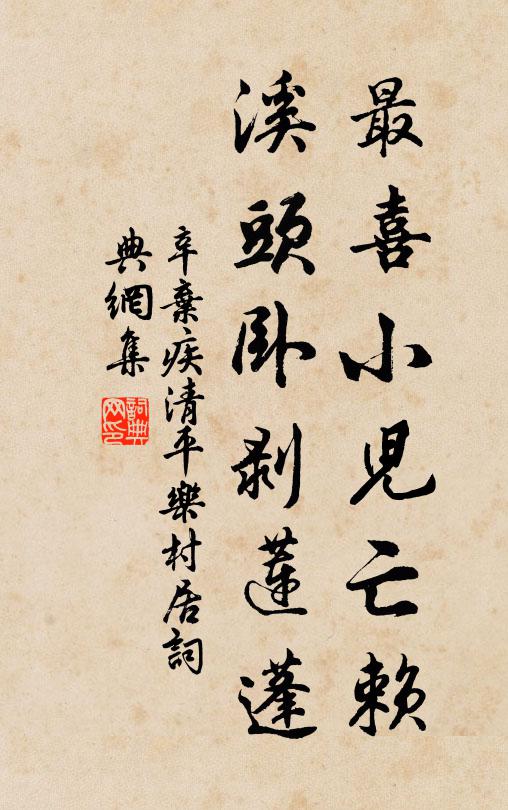 最喜小兒亡賴
溪頭臥剥蓮蓬
辛棄疾清平樂村居詞
典網集
詞典网印